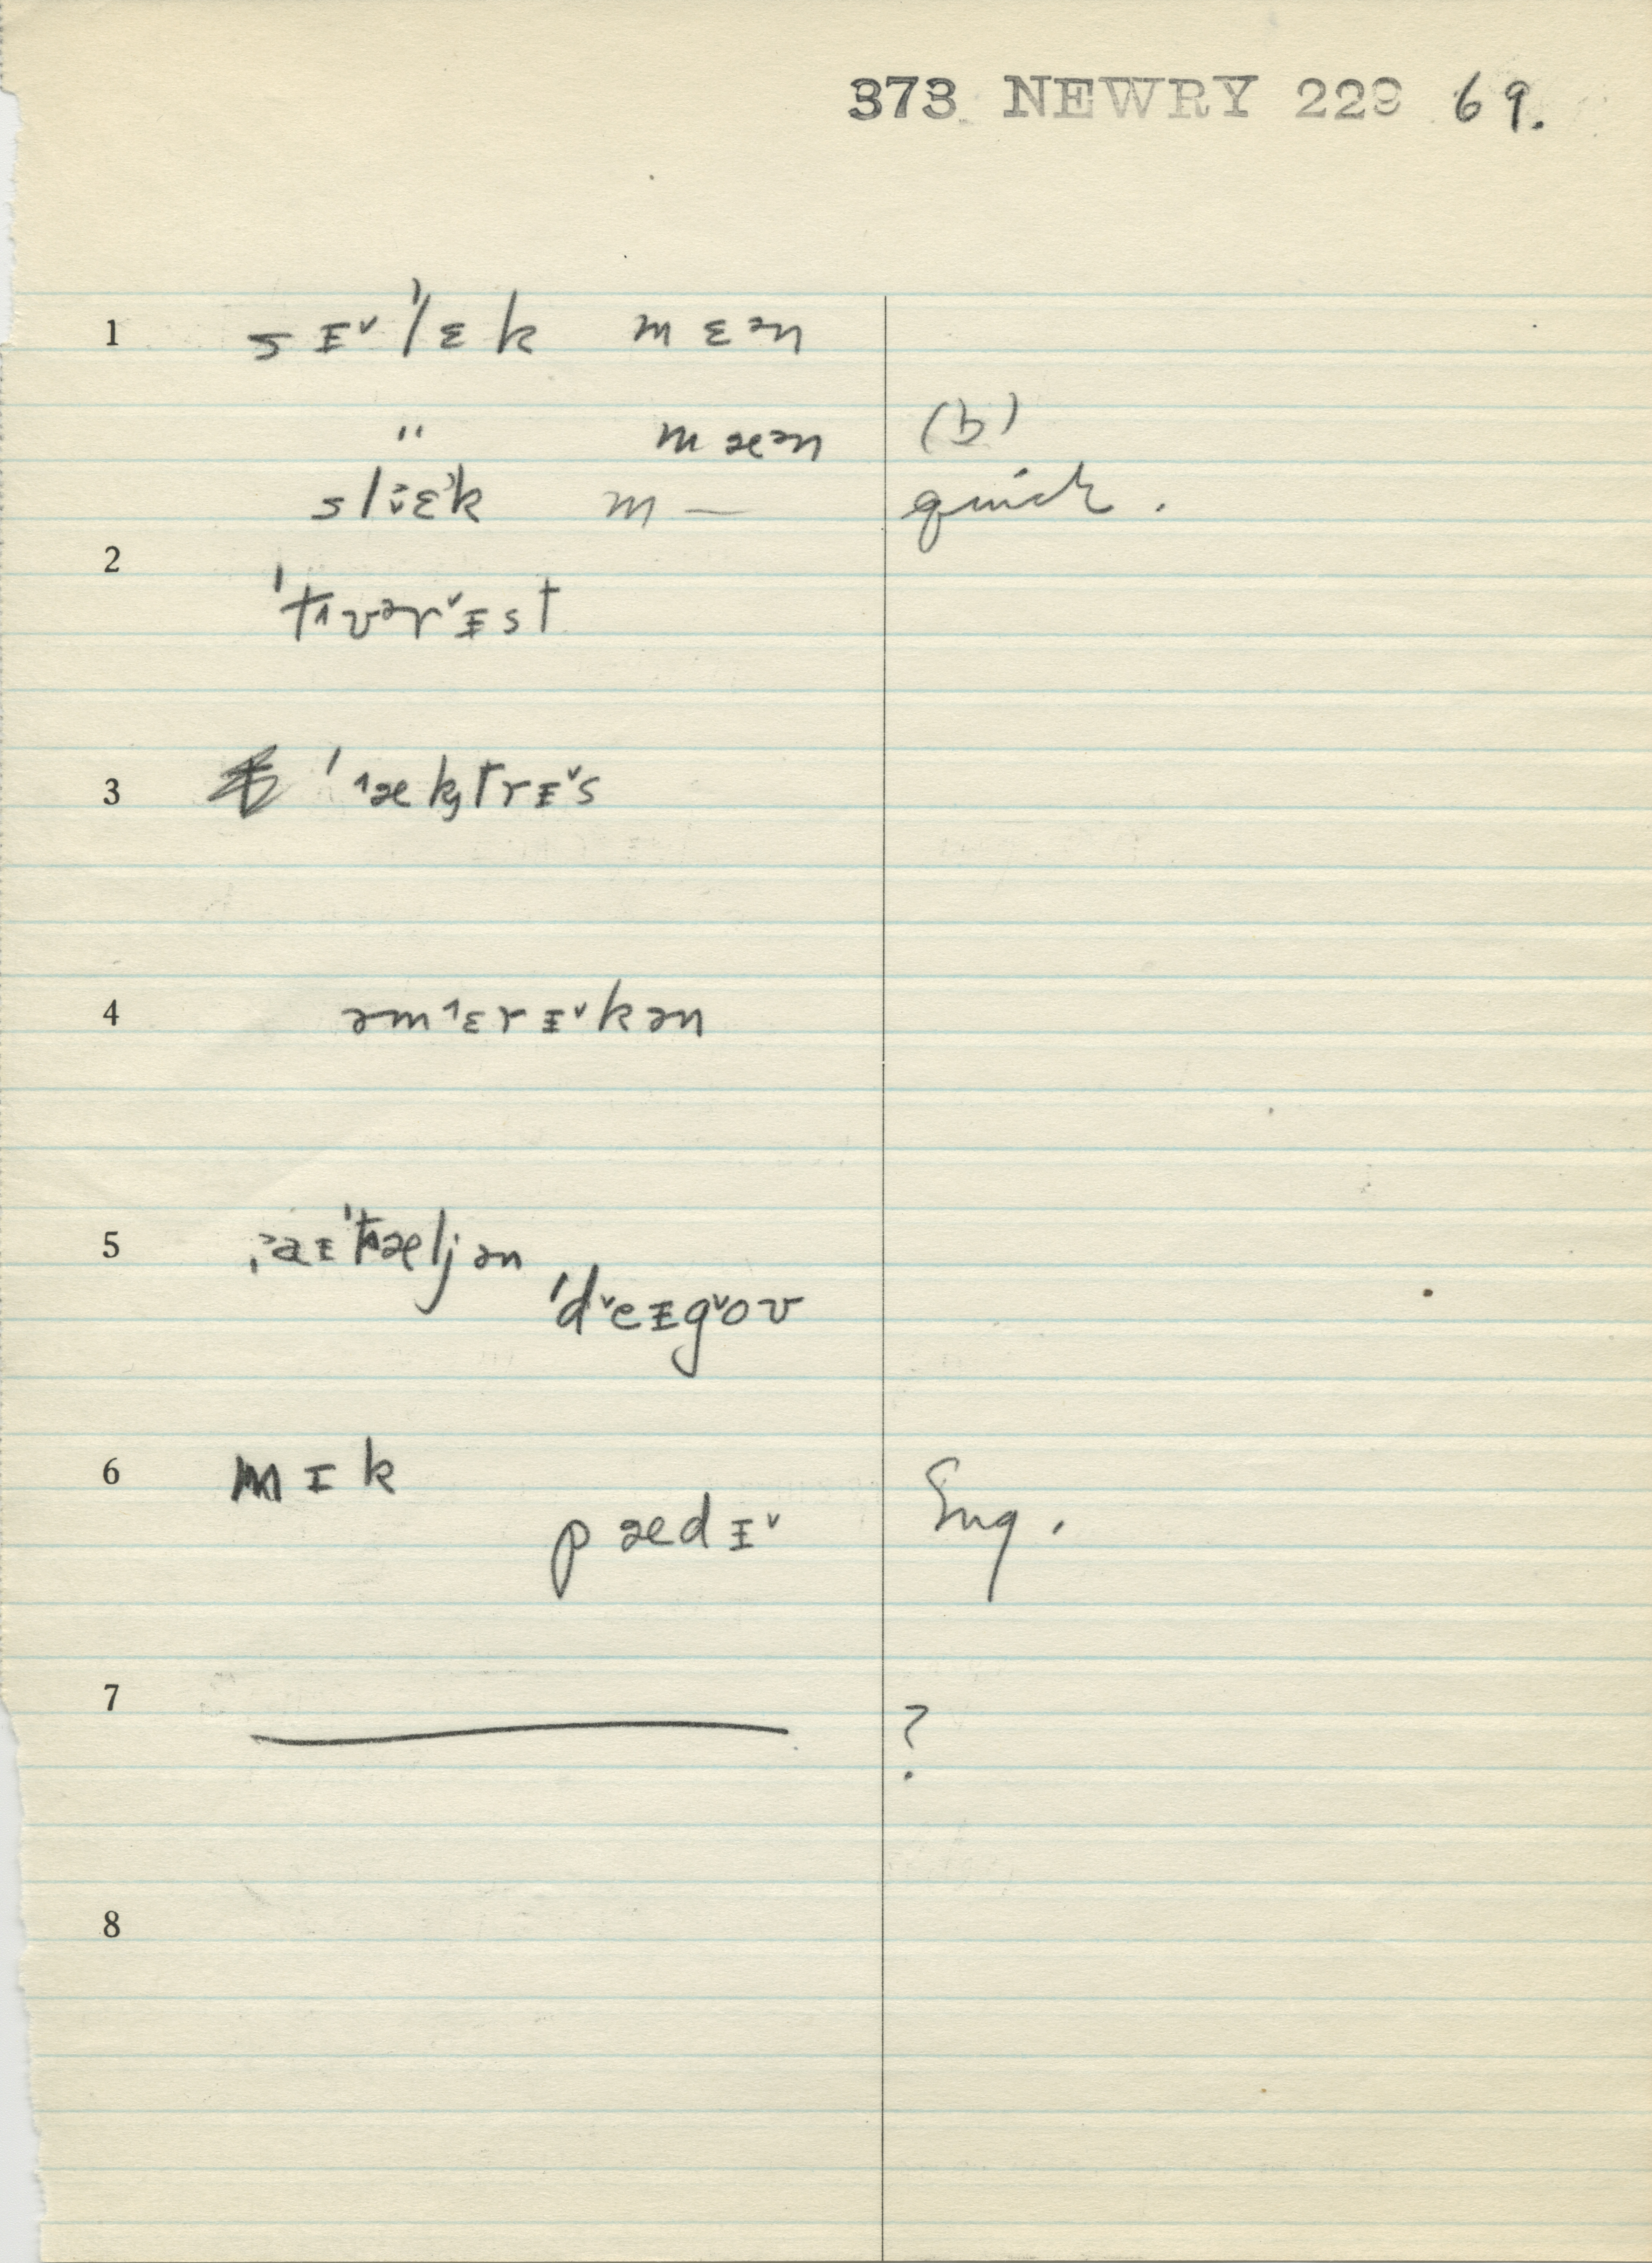 373 NEWRY 229 69.
1 sɪ˅ˈlɛk mɛən
" mæən (b)
m — quick.
2
ˈtʌvərˇɪst
3 ˈ˄æktrɪˇs
4 əm˄ɛrɪˇkən
5 ˈtʌæljən
ˈdˇeɪgˇoʊ
6 mɪk
pædɪˇ Eng.
7 ?
8